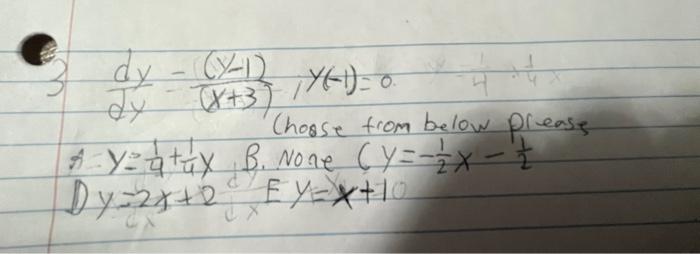 3 dy/dy = (y-1)/(x+3) , y(-1)=0
Choose from below please
A y=1/4+1/4x B. None C y=-1/2x-1/2
D y=2x+2 E y=x+10